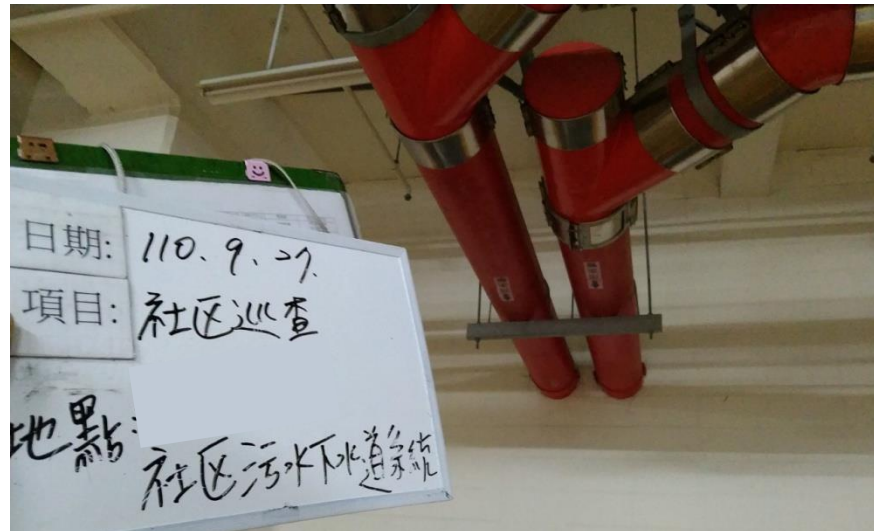 日期: 110、9、27.
項目: 社区巡查
地點:
社区污水下水道系統